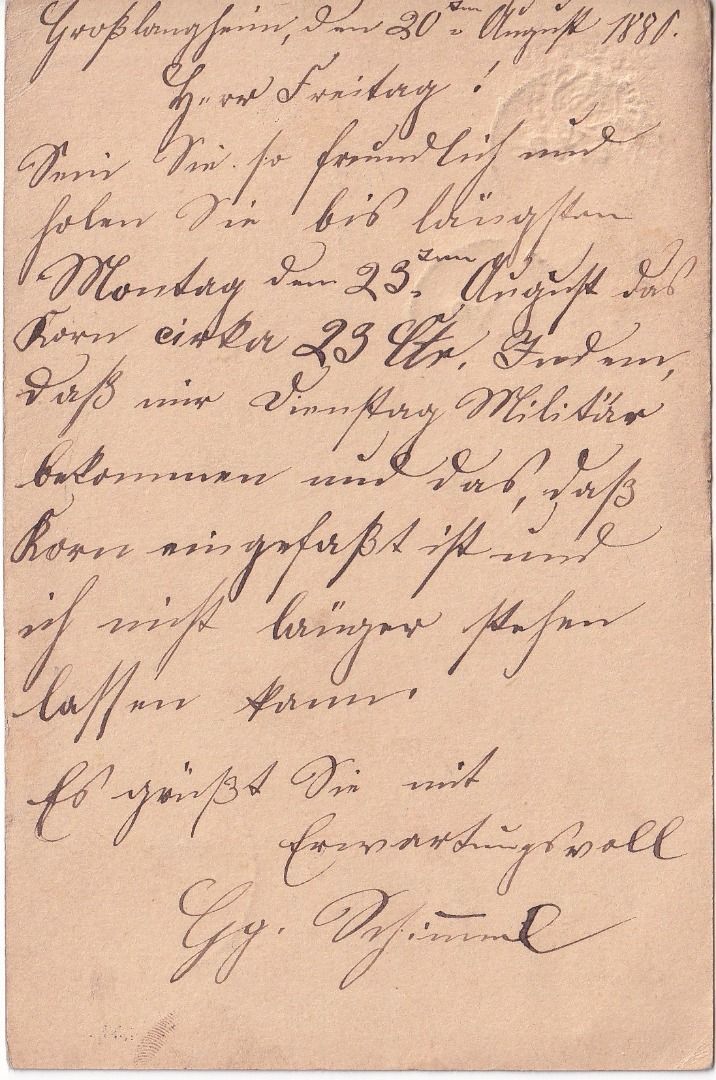 Großlangheim, den 20ten August 1886.
Herr Freitag!
Sein Sie so freundlich und
holen Sie bis längsten
Montag den 23ten August das
Korn cirka 23 Ctr. Indem,
daß mir Dienstag Militär
bekommen und das, daß
Korn eingefaßt ist und
ich nicht länger stehen
lassen kann.
Es grüßt Sie mit
Erwartungsvoll
Gg. Schimmel